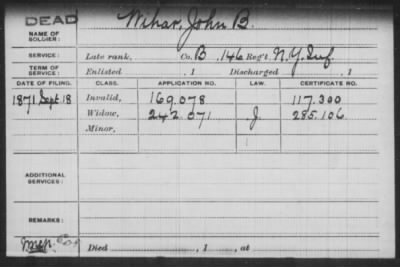 DEAD
NAME OF SOLDIER: Wihar, John B.
SERVICE: Late rank, Co. B, 146 Reg't N.Y. Inf.
TERM OF SERVICE: Enlisted , 1 Discharged , 1
DATE OF FILING. CLASS. APPLICATION NO. LAW. CERTIFICATE NO.
1871 Sept 18 Invalid, 169.078 117.300
Widow, 242.071 J 285.106
Minor,
ADDITIONAL SERVICES:
REMARKS:
Died , 1 , at